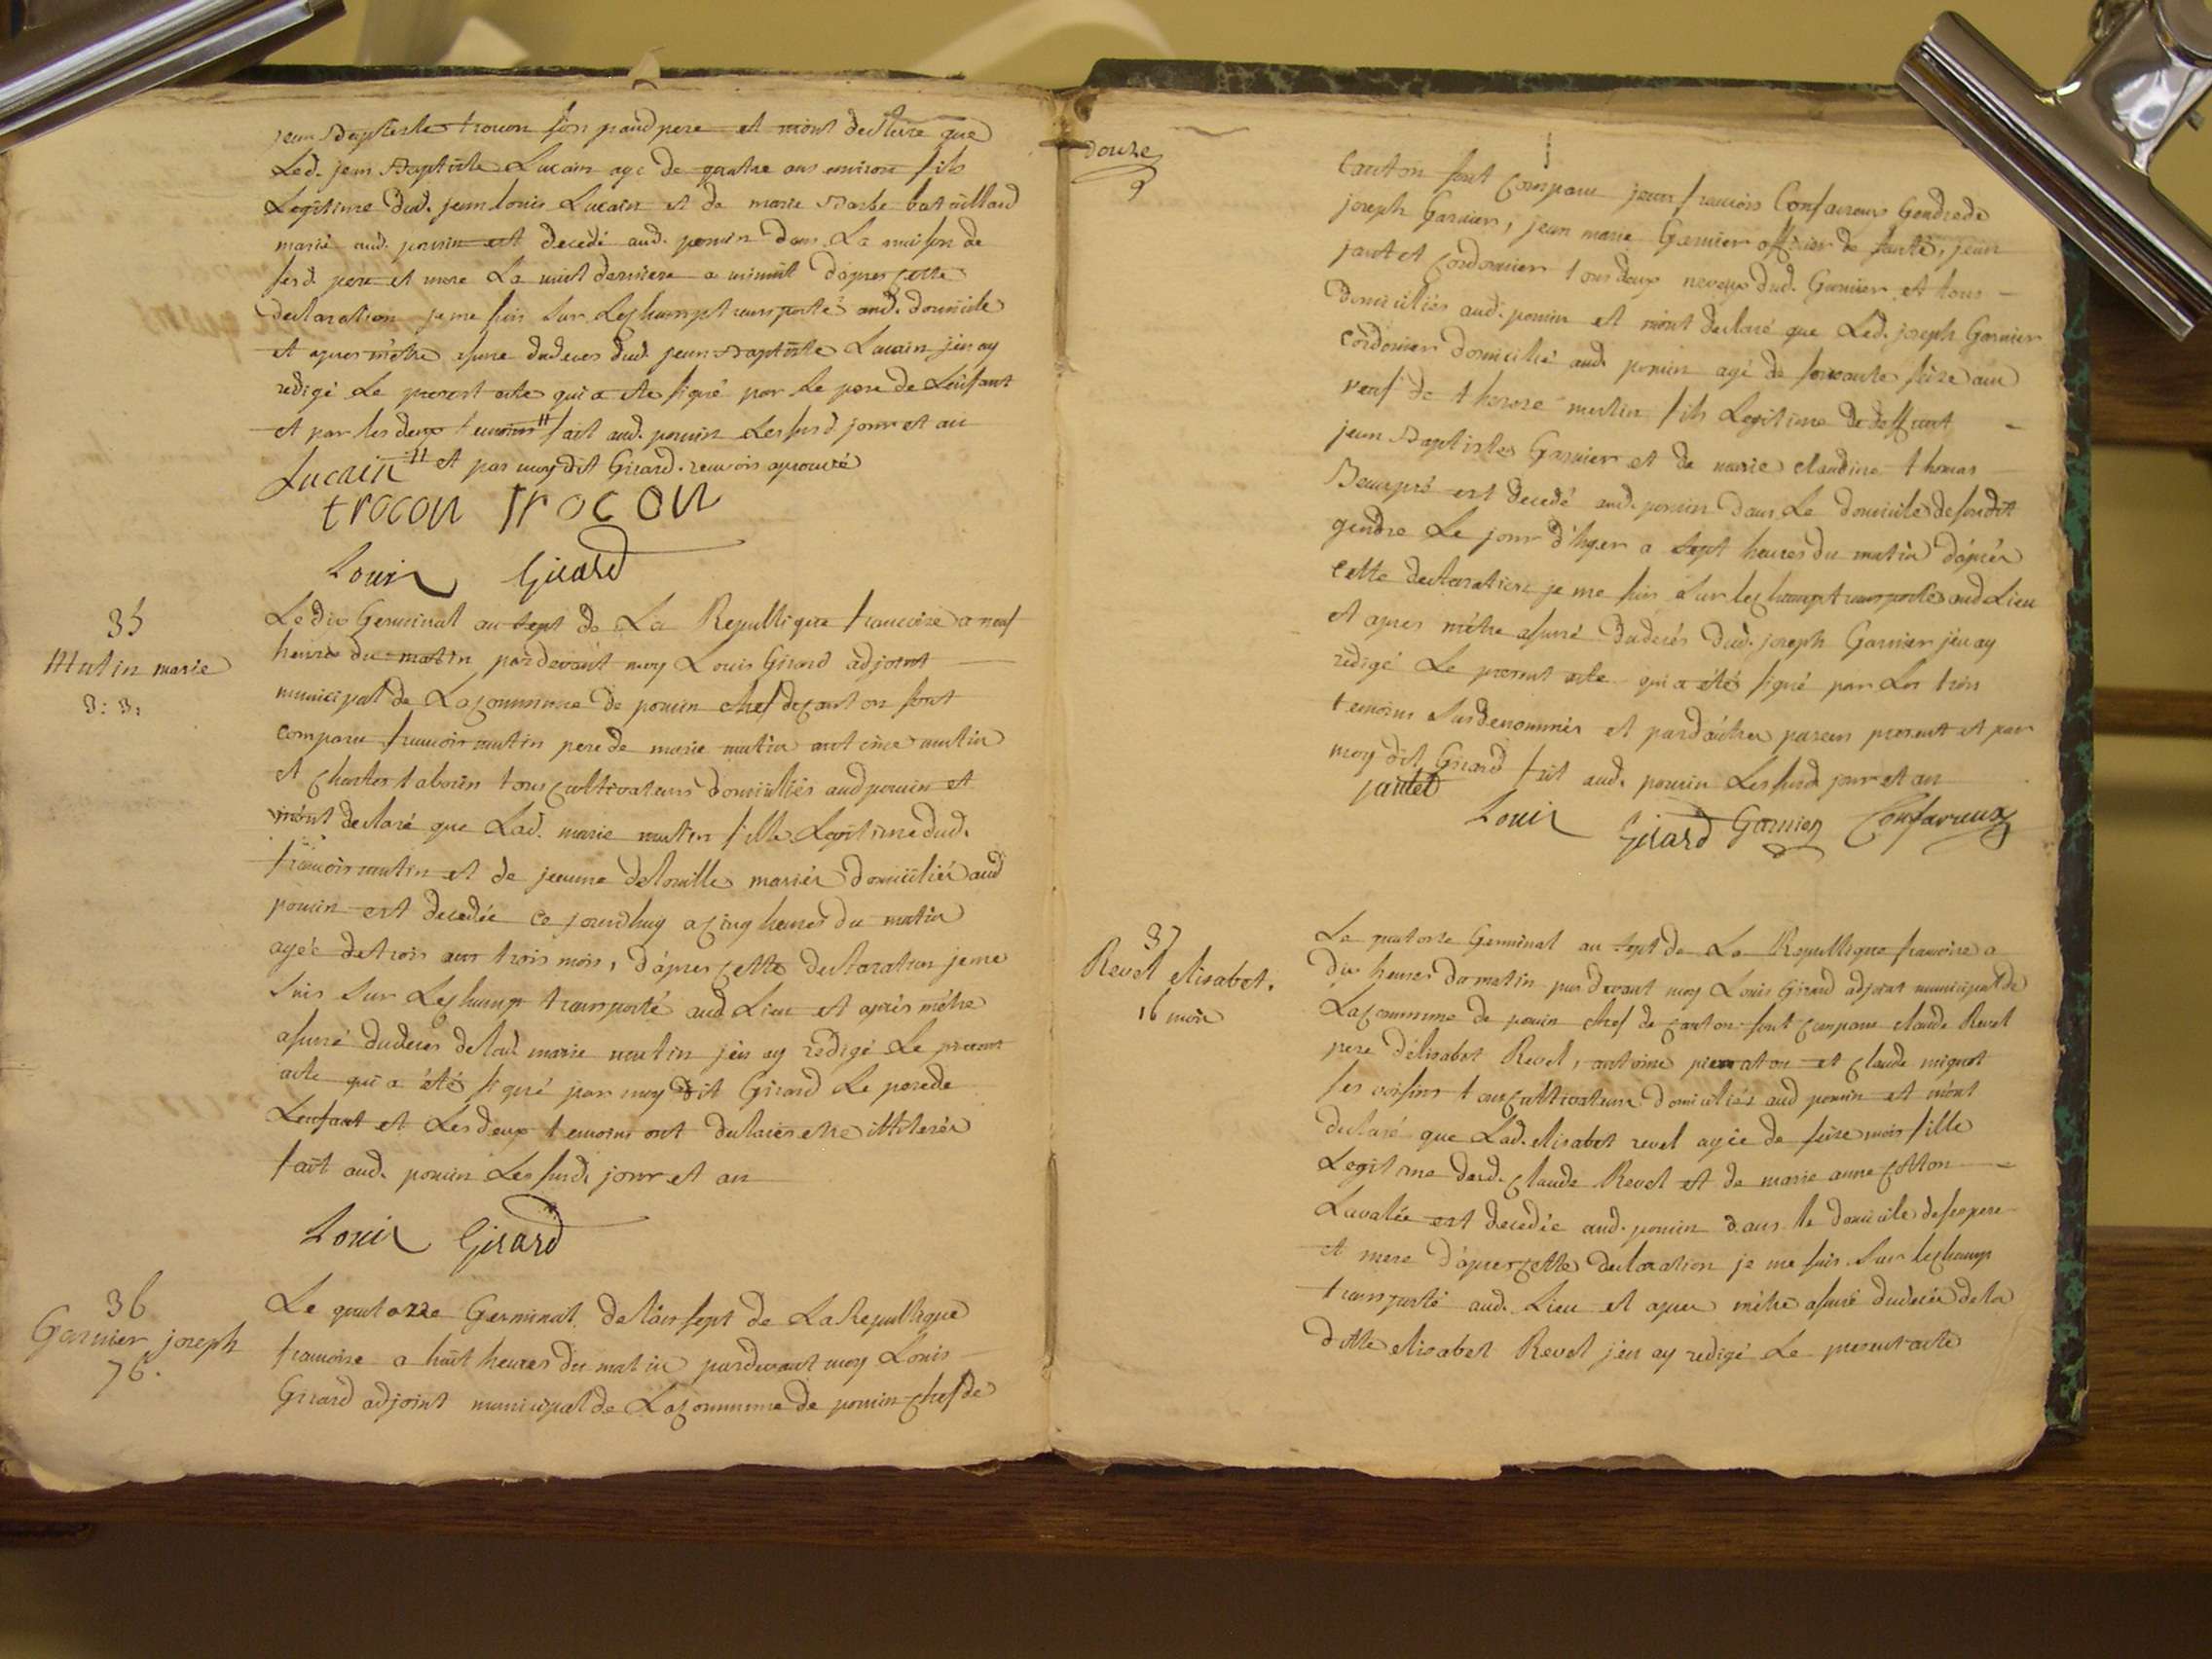 jean Baptiste trocon son grand pere et m'ont declaré que
Led. jean Baptiste Lucain agé de quatre ans environ fils
Legitime dud. jean louis Lucain et de marie Barbe batouillard
marié aud. poncin est decedé aud. poncin dans La maison de
sesd. pere et mere La nuit derniere a minuit d'apres cette
declaration je me suis sur Lechampt transporté aud. domicile
et apres m'etre assuré dudeces dud. jean Baptiste Lucain j'en ay
redigé Le present acte qui a ete signé par Le pere de L'enfant
et par les deux temoins # fait aud. poncin Les susd. jour et an
Lucain # et par moy dit Girard. renvois aprouvé
trocon trocon
Louis Girard
35
Mutin marie
3: 3:
Le dix Germinal an sept de La Republique francoise a neuf
heures du matin pardevant moy Louis Girard adjoint
municipal de La commune de poncin chef de canton sont
comparu francois mutin pere de marie mutin antoine mutin
et Charles tabouin tous cultivateurs domiciliés aud poncin et
m'ont declaré que Lad. marie mutin fille Legitime dud.
francois mutin et de jeanne delouille mariés domiciliés aud
poncin est decedée ce jourdhuy a cinq heures du matin
agée de trois ans trois mois, d'apres cette declaration je me
suis sur Lechamp transporté aud Lieu et après m'être
assuré dudeces de lad. marie mutin j'en ay redigé Le present
acte qui a été signé par moy dit Girard Le pere de
Lenfant et Les deux temoins ont declarés etre illiterés
fait aud. poncin Les susd. jour et an
Louis Girard
36
Garnier joseph
76.
Le quatorze Germinal de l'an sept de La Republique
francoise a huit heures du matin pardevant moy Louis
Girard adjoint municipal de La commune de poncin chef de
douze
canton sont comparu jean francois Confavreux Gendre de
joseph Garnier, jean marie Garnier officier de santé, jean
jantet cordonnier tous deux neveux dud. Garnier et tous
domiciliés aud. poncin et m'ont declaré que Led. joseph Garnier
cordonier domicilié aud. poncin agé de soixante seize ans
veuf de therese mutin fils Legitime de deffunt
jean Baptiste Garnier et de marie claudine thomas
Beaupré est decedé aud. poncin dans Le domicile de sondit
gendre Le jour d'hyer a sept heures du matin d'après
cette declaration je me suis sur lechampt transporté aud Lieu
et apres m'être assuré dudecés dud. joseph Garnier j'en ay
redigé Le present acte qui a été signé par Les trois
temoins susdenommés et par d'autres parens present et par
moy dit Girard fait aud. poncin Les susd. jour et an
jantet
Louis Girard Garnier Confavreux
37
Revel elisabet.
16 mois
Le quatorze Germinal an sept de La Republique francoise a
dix heures du matin par devant moy Louis Girard adjoint municipal de
La commune de poncin chef de canton sont comparu claude Revel
pere d'elisabet Revel, antoine pierraton et claude mignot
ses voisins tous cultivateurs domiciliés aud poncin et m'ont
declaré que Lad. elisabet revel agée de seize mois fille
Legitime dud. claude Revel et de marie anne cotton
Lavalée est decedée aud. poncin dans le domicile de ses pere
et mere d'apres cette declaration je me suis sur lechamp
transporté aud. Lieu et apres m'être assuré dudecés de la
ditte elisabet Revel j'en ay redigé Le present acte